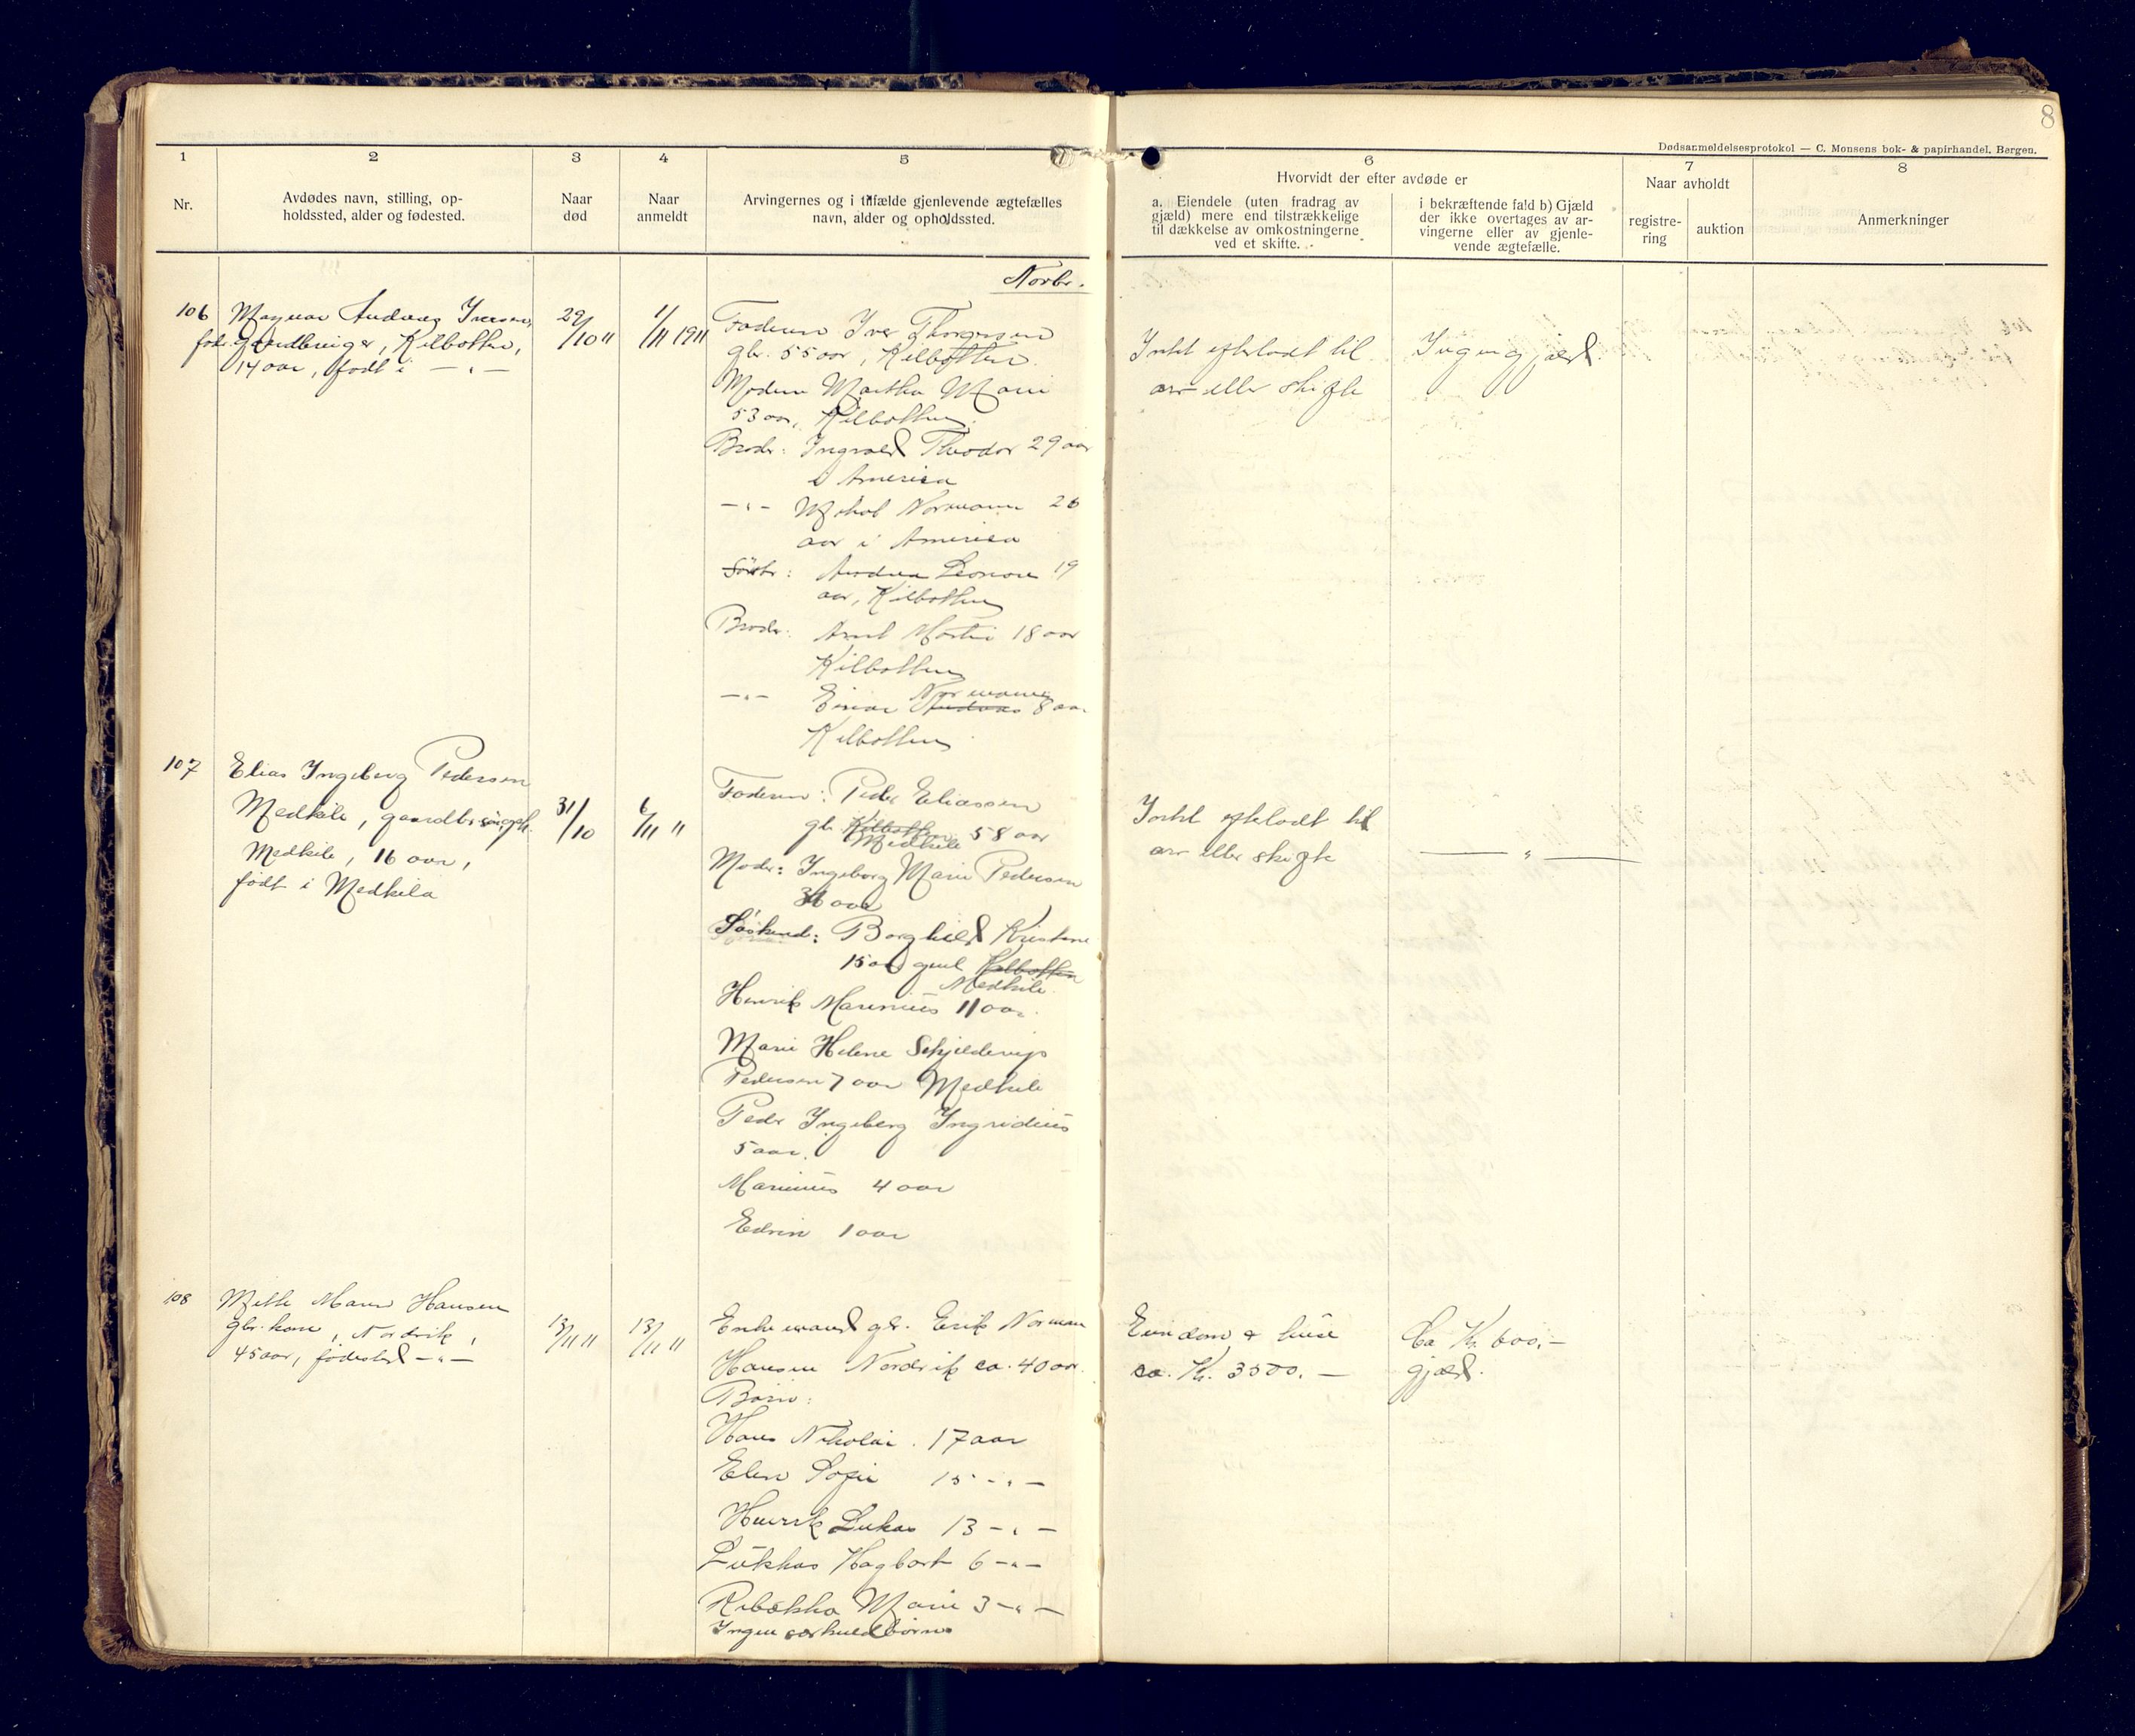 8
Dødsanmeldelsesprotokol — C. Monsens bok- & papirhandel, Bergen.
1
Nr.
2
Avdødes navn, stilling, op-
holdssted, alder og fødested.
3
Naar
død
4
Naar
anmeldt
5
Arvingernes og i tilfælde gjenlevende ægtefælles
navn, alder og opholdssted.
6
Hvorvidt der efter avdøde er
a. Eiendele (uten fradrag av
gjæld) mere end tilstrækkelige
til dækkelse av omkostningerne
ved et skifte.
i bekræftende fald b) Gjæld
der ikke overtages av ar-
vingerne eller av gjenle-
vende ægtefælle.
7
Naar avholdt
registre-
ring
auktion
8
Anmerkninger
Novbr.
106
Magnar Andreas Iversen,
gaardbruger, Kilbotten,
14 aar, født i — „ —
29/10 11
1/11 1911
Faderen Iver Thorgersen
gbr. 55 aar, Kilbotten
Moderen Martha Marie
53 aar, Kilbotten
Broder: Ingvald Theodor 29 aar
i America
— „ — Mikal Normann 26
aar i America
Søster: Andrea Leonore 19
aar, Kilbotten
Broder: Arnt Martin 18 aar
Kilbotten
— „ — Einar Normann 8 aar
Kilbotten
Intet efterladt til
arv eller skifte
Ingen gjæld
107
Elias Ingeberg Pedersen
Medkile, gaardbr.
Medkile, 16 aar,
født i Medkila
31/10
6/11 "
Faderen: Peder Eliassen
gbr. Kilbotten 58 aar
Medkile
Moder: Ingeborg Marie Pedersen
aar
Søskend: Borghild Kristine
15 aar Kilbotten
Medkile
Henrik Marinius 11 aar.
Marie Helene Schjelderup
Pedersen 7 aar Medkile
Peder Ingeberg Ingridius
5 aar.
Marinius 4 aar
Edvin 1 aar
Intet efterladt til
arv eller skifte
— „ —
108
Mette Marie Hansen
gbr. kone, Nordvik,
45 aar, fødested — „ —
13/11 11
13/11 11
Enkemand gbr. Erik Norman
Hansen Nordvik ca. 40 aar.
Børn:
Hans Nikolai. 17 aar
Elen Sofie 15 — „ —
Henrik Lukas 13 — „ —
Lükkas Hagbart 6 — „ —
Rebekka Marie 3 — „ —
Ingen særkuldbørn
Eiendom & huse
ca. Kr. 3500. —
Ca Kr. 600. —
gjæld.